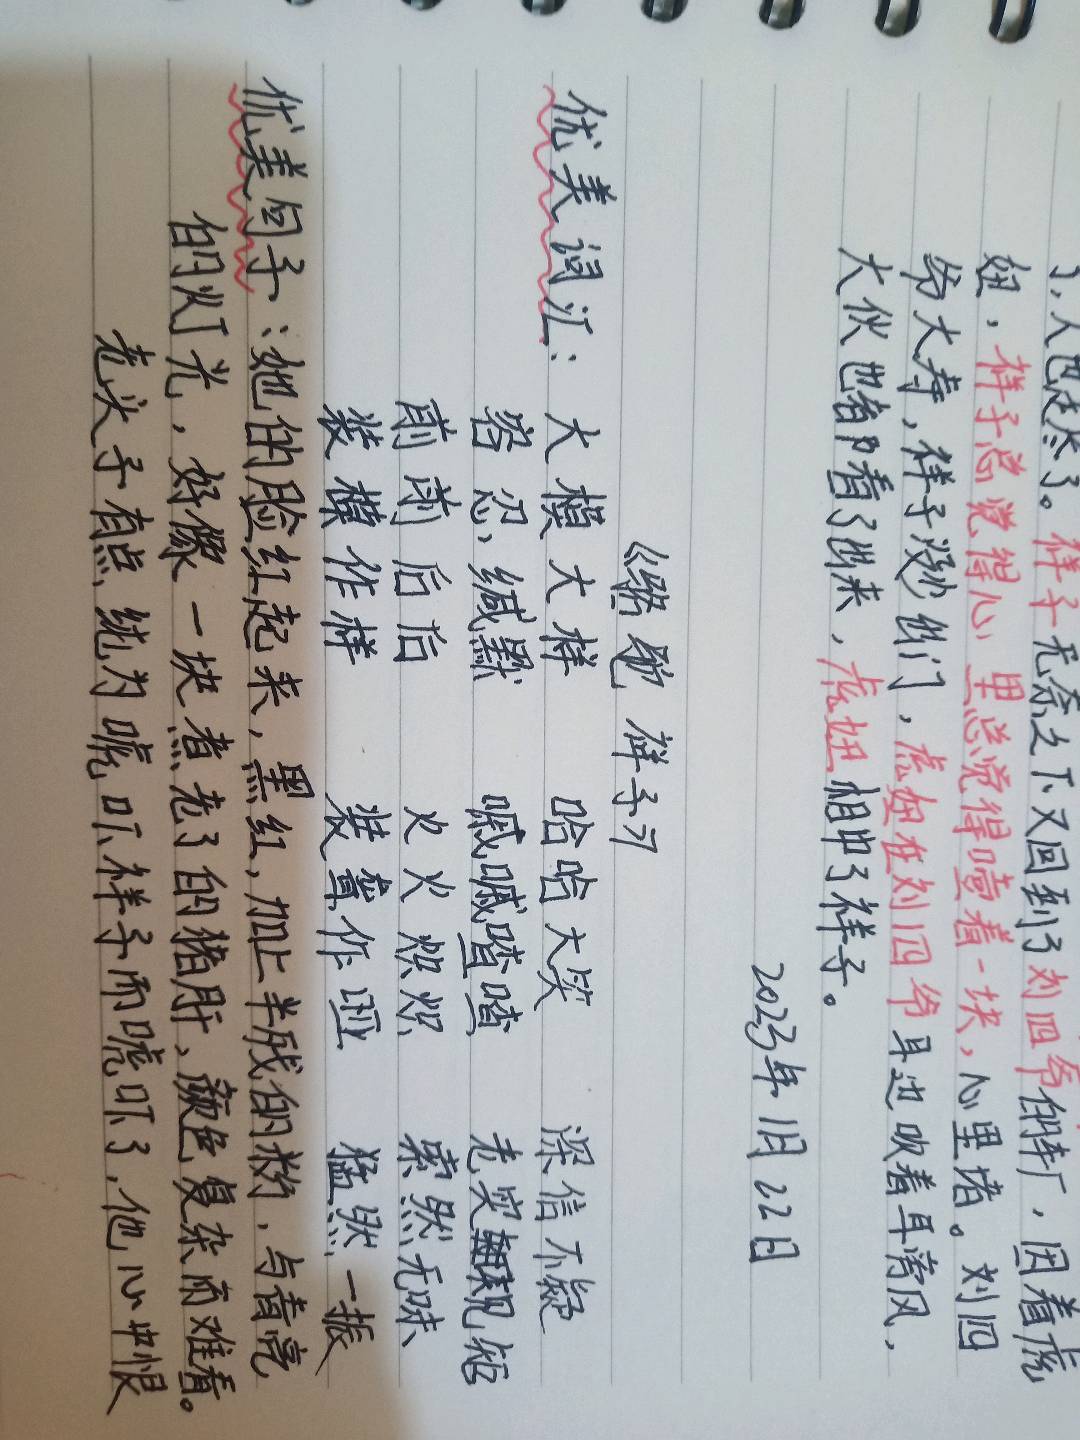 了，人也赶尽了。祥子无奈之下又回到了刘四爷的车厂，因着虎
妞，祥子总觉得心里总觉得噎着一块，心里堵。刘四
爷大寿，祥子没钞们，虎妞在刘四爷耳边吹着耳旁风，
大伙也都看了出来，虎妞相中了祥子。
2023年1月22日
《骆驼祥子》
优美词汇：大模大样 哈哈大笑 深信不疑
容忍，缄默 嘁嘁喳喳 老实巴
前前后后 火火炽炽 索然无味
装模作样 装聋作哑 猛然一振
优美句子：她的脸红起来，黑红，加上半残的粉，与青亮
的灯光，好像一块煮老了的猪肝，颜色复杂而难看。
老头子有点纯为唬吓祥子而唬吓了，他心中恨